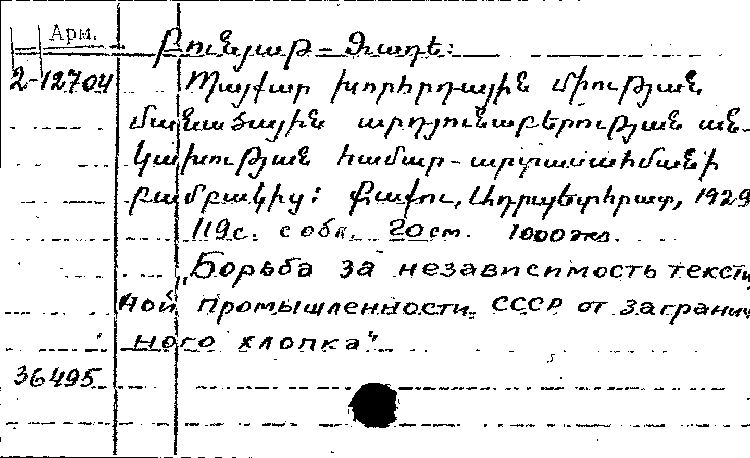 Арм.
Բունյաթ-Զադե:
2-12704 Պայքար խորհրդային միության
մանածային արդյունաբերության ան-
կախության համար-արտասահմանի
բամբակից: Բաքու, Ադրպետհրատ, 1929
119с. с обл. 20 см. 1000 экз.
„Борьба за независимость тексти
ной промышленности СССР от загранич
ного хлопка"
36495